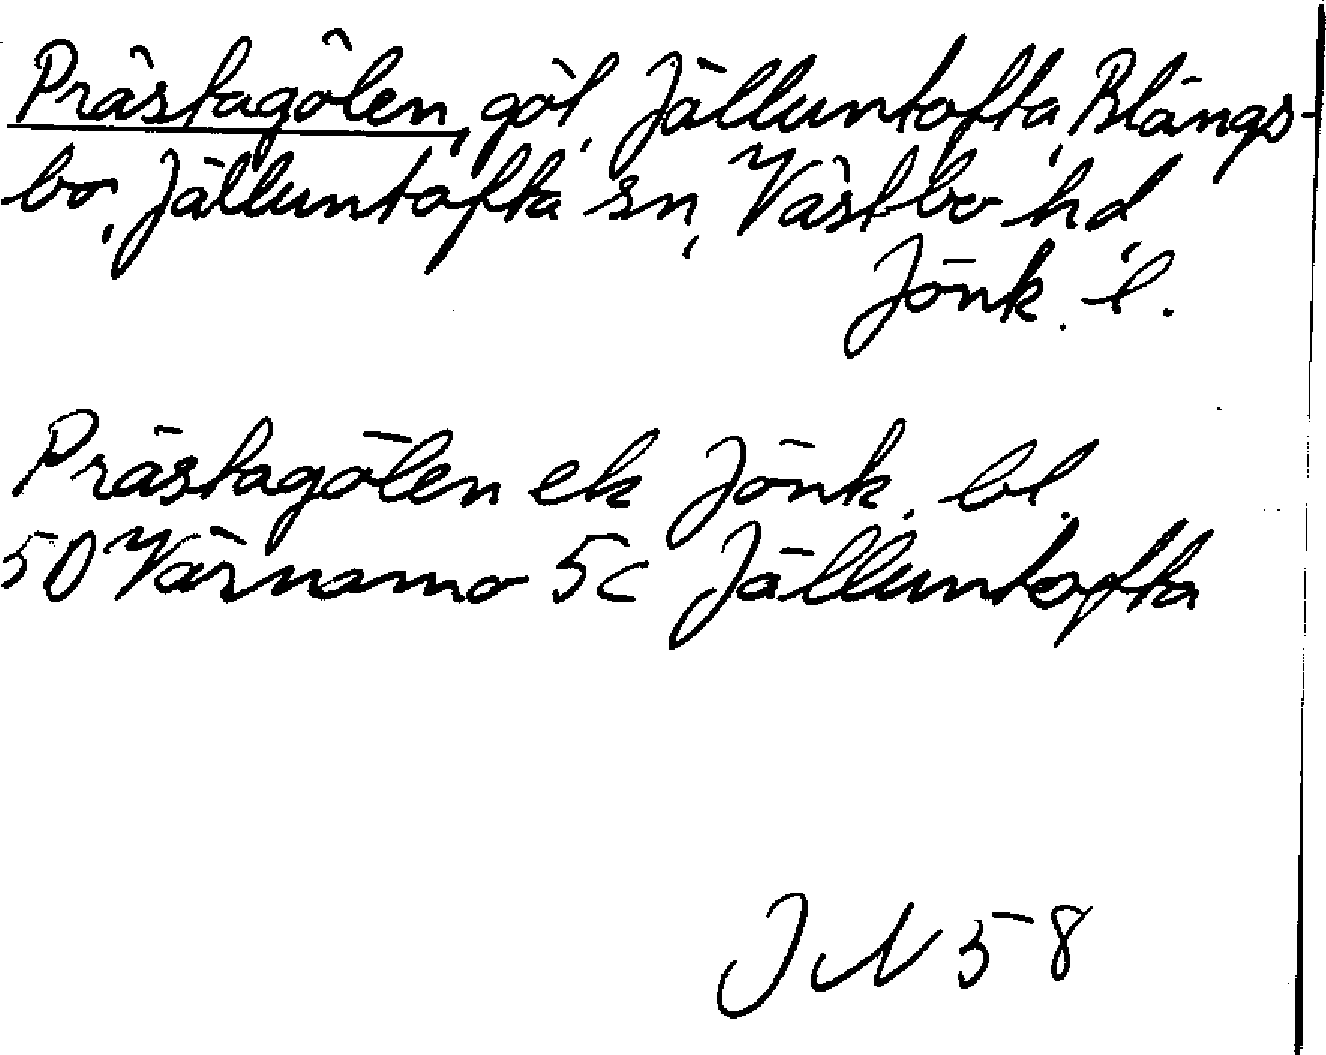 Prästagölen, göl, Jälluntofta, Blängs-
bo, Jälluntofta sn, Västbo hd,
Jönk. l.
Prästagölen ek Jönk. bl.
5D Värnamo 5c Jälluntofta
JN 58